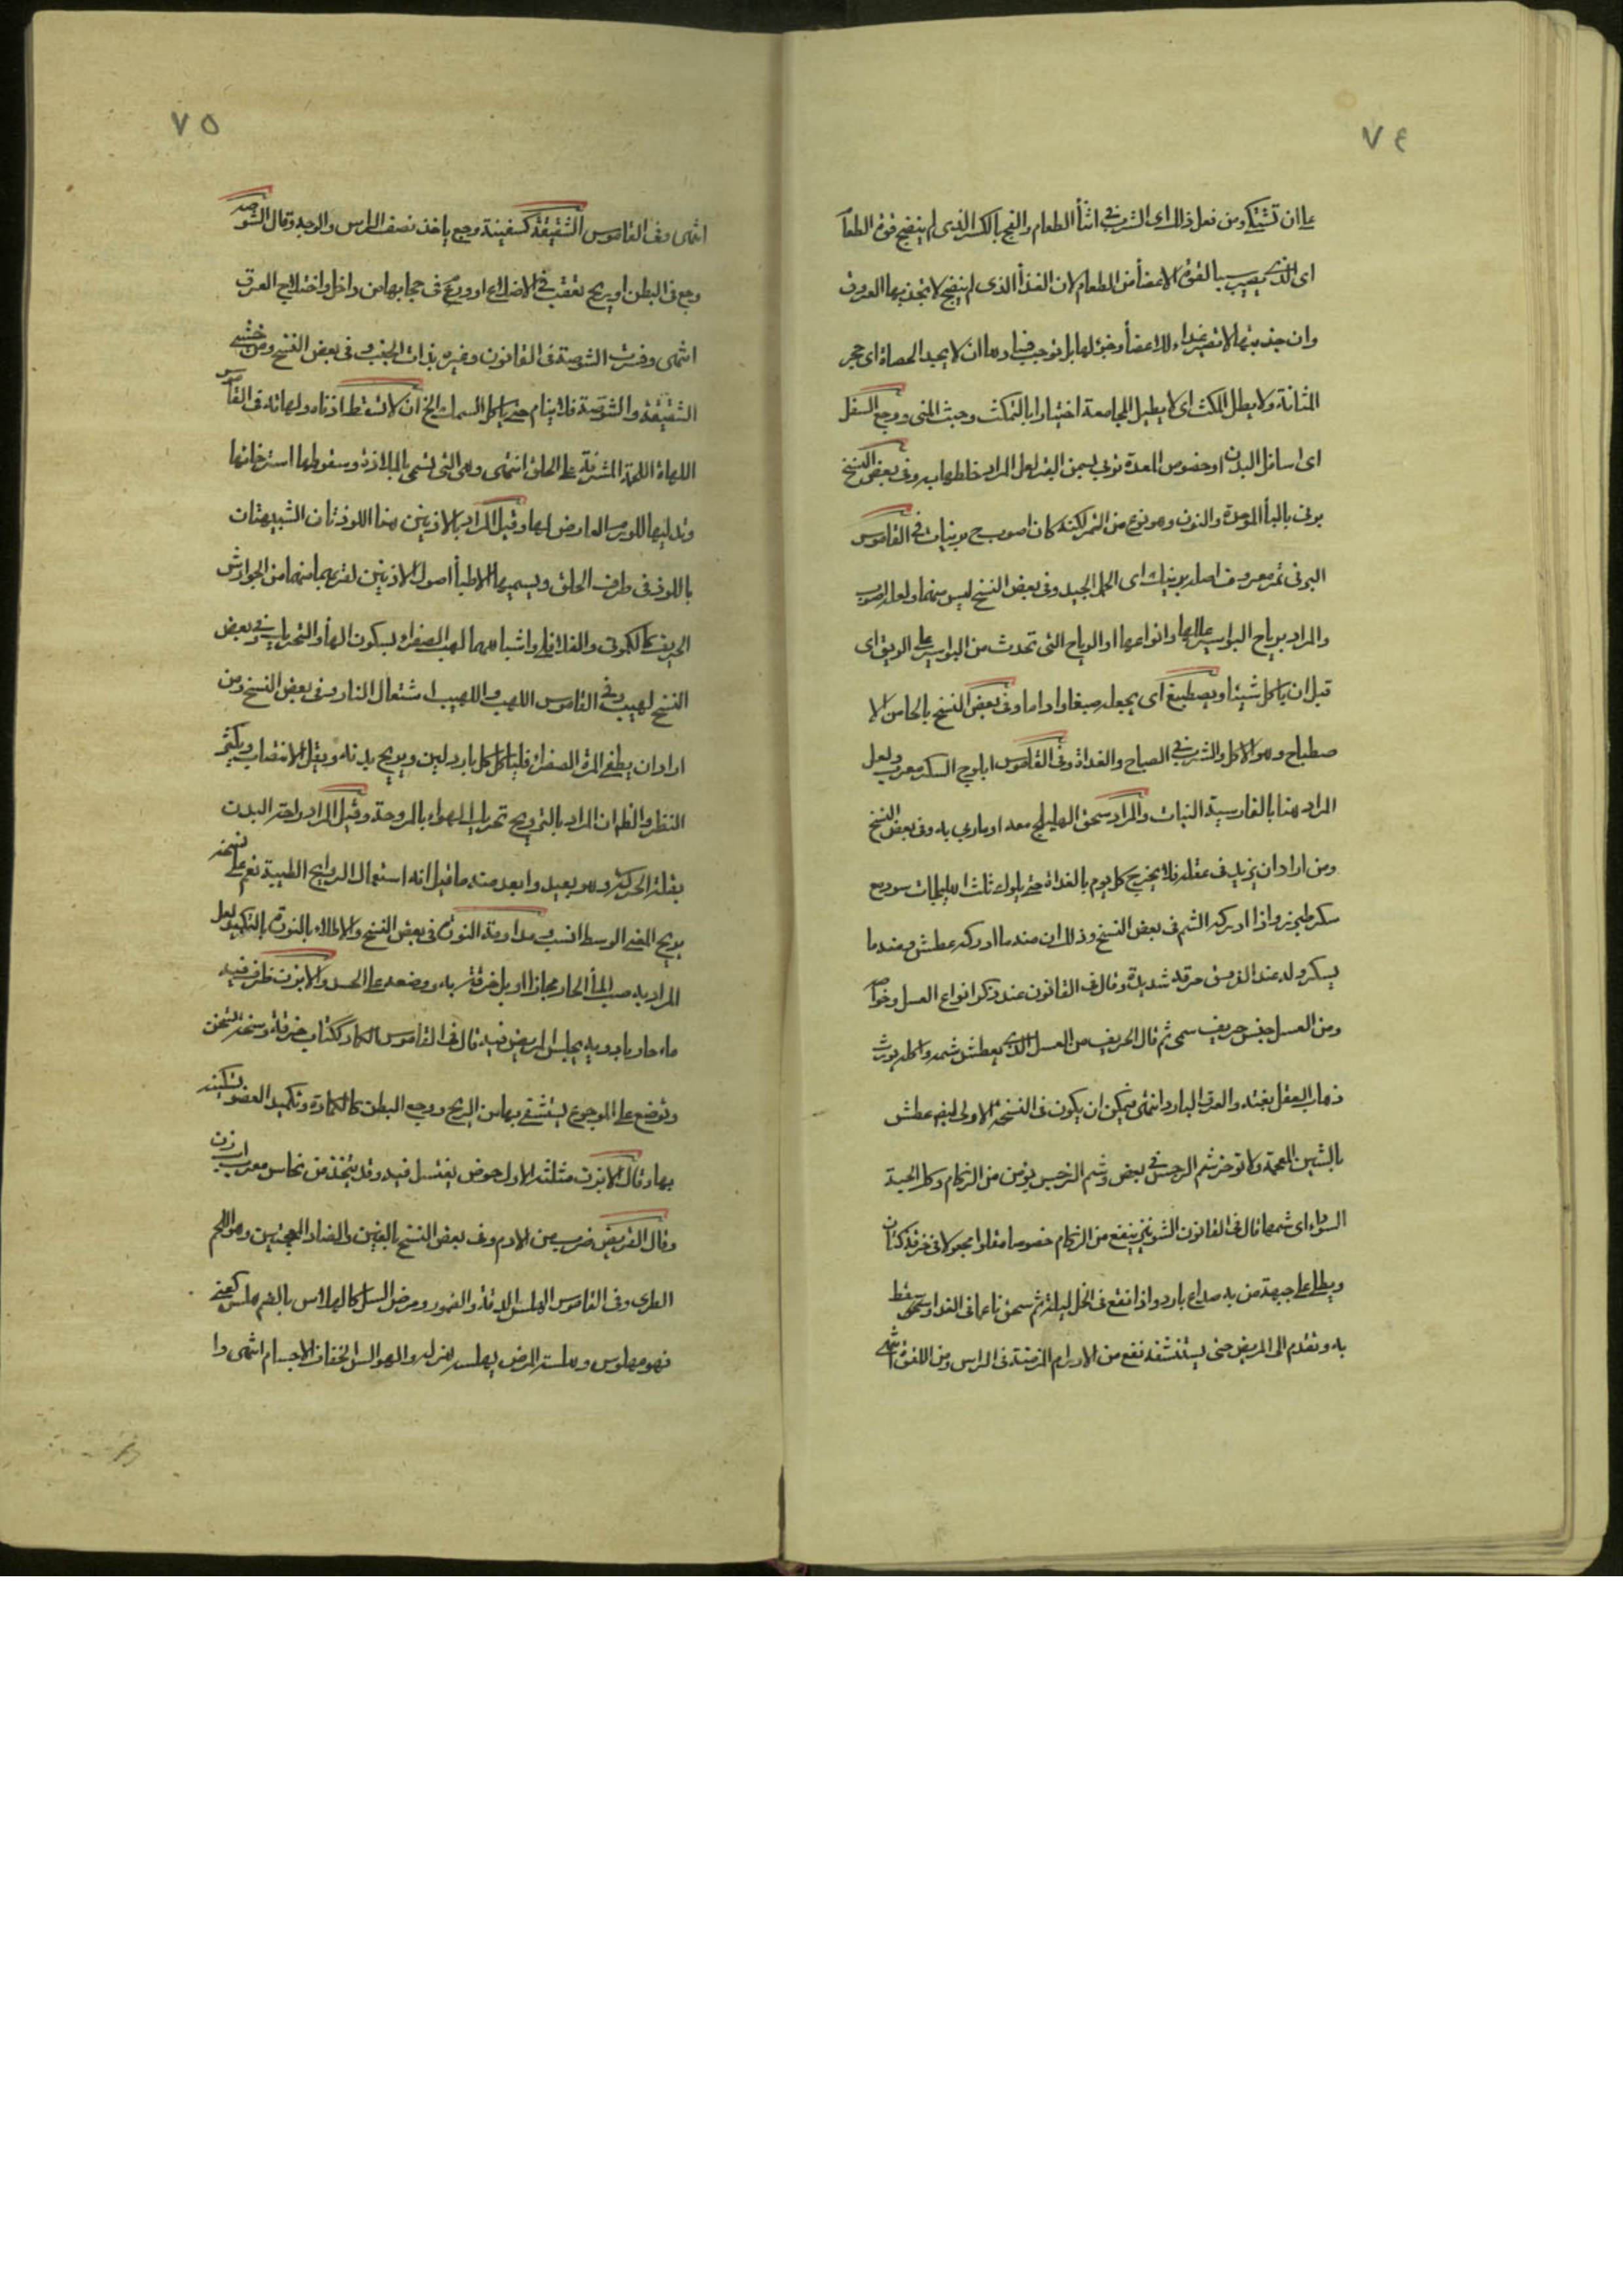 ٧٤
على ان تشتكى ومن فعل ذالك اى الشرب فى اثنأ الطعام والفج بالكسر الذى لم ينضج قوة الطعام
اى الذى يصير سببا لقوة الاعضأ من الطعام لان الغذأ الذى لم ينضج لا تجذبها العروق
وان جذبتها لا تصير غداء للاعضأ وقوة لها بل توجب فسادها ان لا يجد الحصاة اى حجر
المثانة ولا يطل المكث اى لا يطيل المجامعة اختيارا بالتمكث وحبث المنى ووجع السفل
اى اسافل البدن او خصوص المعدة تربى بسمن البقر لعل المراد خلطها به وفى بعض النسخ
برنى بالبأ الموحدة والنون وهو نوع من التمر لكنه كان اصوب ح برنيات فى القاموس
البرنى تمر معروف اصله برنيك اى الحمل الجيد وفى بعض النسخ ليس منهما ولعله اصوب
والمراد برياح البواسير عللها وانواعها او الرياح التى تحدث من البواسير على الريق اى
قبل ان ياكل شيئا ويصطبغ اى يجعل صبغا واداما وفى بعض النسخ بالحا من الا
صطباح وهو الاكل والشرب فى الصباح والغداة وفى القاموس ابلوج السكر معرب ولعل
المراد هنا بالفارسية النبات والمراد سحق الهليلج معه او مربى به وفى بعض النسخ
ومن اراد ان يزيد فى عقله فلا يخرج كل يوم بالغداة حتى يلوك ثلث اهليلجات سود مع
سكر طبرزد واذا ادركه الشم فى بعض النسخ وذلك ان منه ما ادركه عطش ومنه ما
يسكر وله عند الذوق حرقة شديدة وقال فى القانون عند ذكر انواع العسل وخواصه
ومن العسل جنس حريف سمى ثم قال الحريف من العسل الذى يعطش شمه واكله يورث
ذهاب العقل بغتة والعرق البارد انتهى فيمكن ان يكون فى النسخة الاولى ايضا عطش
بالشين المعجمة ولا توخر شم النرجس فى بعض وشم النرجس يؤمن من الزكام وكذا الحبة
السوداء اى شمها قال فى القانون الشونيز ينفع من الزكام خصوصا مقلوا مجعولا فى خرقة كتان
ويطلى على جبهة من به صداع بارد واذا نقع فى الخل ليلة ثم سحق ناعما فى الغد او سعط
به وتقدم الى المريض حتى يستنشقه نفع من الاورام المزمنة فى الراس ومن اللقوة
٧٥
انتهى وفى القاموس الشقيقة كسفينة وجع ياخذ نصف الراس والوجه وقال الشوصة
وجع فى البطن او ريح تعقب فى الاضلاع او ورم فى حجابها من داخل واختلاج العرق
انتهى وفسرت الشوصة فى القانون وغيره بذات الجنب وفى بعض النسخ ومن خشى
الشقيقة والشوصة فلا ينام حتى ياكل السمك الخ ان لا تسقط اذناه ولهاته فى القاموس
اللهاة اللحمة المشرفة على الحلق انتهى وهى التى تسمى بالملاذة وسقوطها استرخائها
وتدليها للورم العارض لها وقيل المراد بالاذنين هنا اللوزتان الشبيهتان
باللوز فى طرفى الحلق ويسميها الاطبأ اصول الاذنين لقربهما منهما من الجوارش
الحريف كالكمونى والفلافلى واشباههما لهب الصفراء بسكون الهأ والتحريك وفى بعض
النسخ لهيب وفى القاموس اللهب واللهيب اشتعال النار وفى بعض النسخ ومن
اراد ان يطفى المرة الصفراء فلياكل كل بارد لين ويروح بدنه ويقل الانتصاب ويكثر
النظر والظاهر ان المراد بالترويح تحريك الهواء بالمروحة وقيل المراد راحة البدن
بقلة الحركة وهو بعيد وابعد منه ما قيل انه استعمال الروايح الطيبة نعم على نسخة
يريح المعنى الوسط انسب ومداومة النورة فى بعض النسخ والاطلاء بالنورة بالتكميد لعل
المراد به صب المأ الحار مجازا او بل خرقة به ووضعه على الجسد والابزن ظرف فيه
ماء حار بادوية يجلس المريض فيه قال فى القاموس الكماد ككتاب خرقة وسخة تسخن
وتوضع على الموجوع يستشفى بها من الريح ووجع البطن كالكمادة وتكميد العضو تسكينه
بها وقال الابزن مثلثة الاول حوض يغتسل فيه وقد يتخذ من نحاس معرب آب زن
وقال القريض ضرب من الادم وفى بعض النسخ بالغين والضاد المعجمتين وهو اللحم
الطرى وفى القاموس الهلس الدقة والضمور ومرض السل كالهلاس بالضم هلس كعنى
فهو مهلوس وهلسه المرض يهلسه هزله والهوالس الخفاف الاجسام انتهى وا